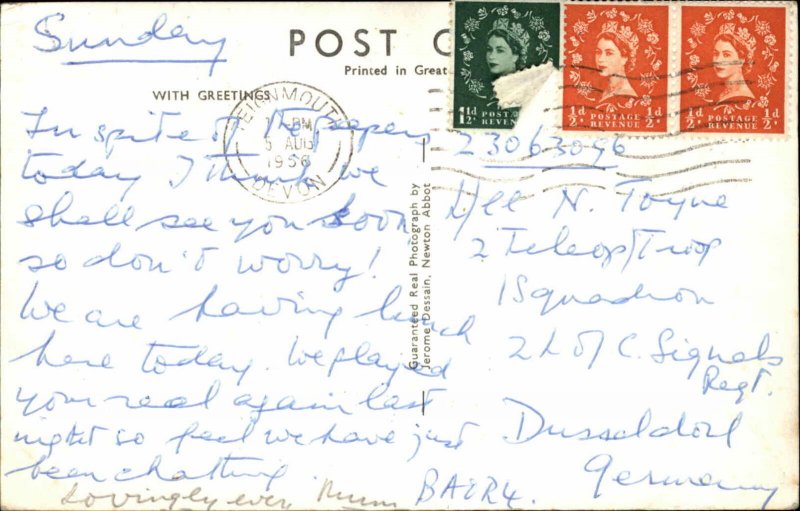 Sunday
POST C
Printed in Great
WITH GREETINGS
TEIGNMOUTH
PM
5 AUG
1956
DEVON
1½d
POSTAGE
REVENUE
½d ½d
POSTAGE
REVENUE
½d ½d
POSTAGE
REVENUE
In spite of the papers
today I think we
shall see you soon
so don't worry!
We are having lunch
here today. We played
your reel again last
night so feel we have just
been chatting.
Lovingly ever, Mum
Guaranteed Real Photograph by
Jerome Dessain, Newton Abbot
23063096
N. Toyne
2 Teleop/Troop
1 Squadron
2 L of C. Signals
Regt.
Dusseldorf
Germany
BAOR4.